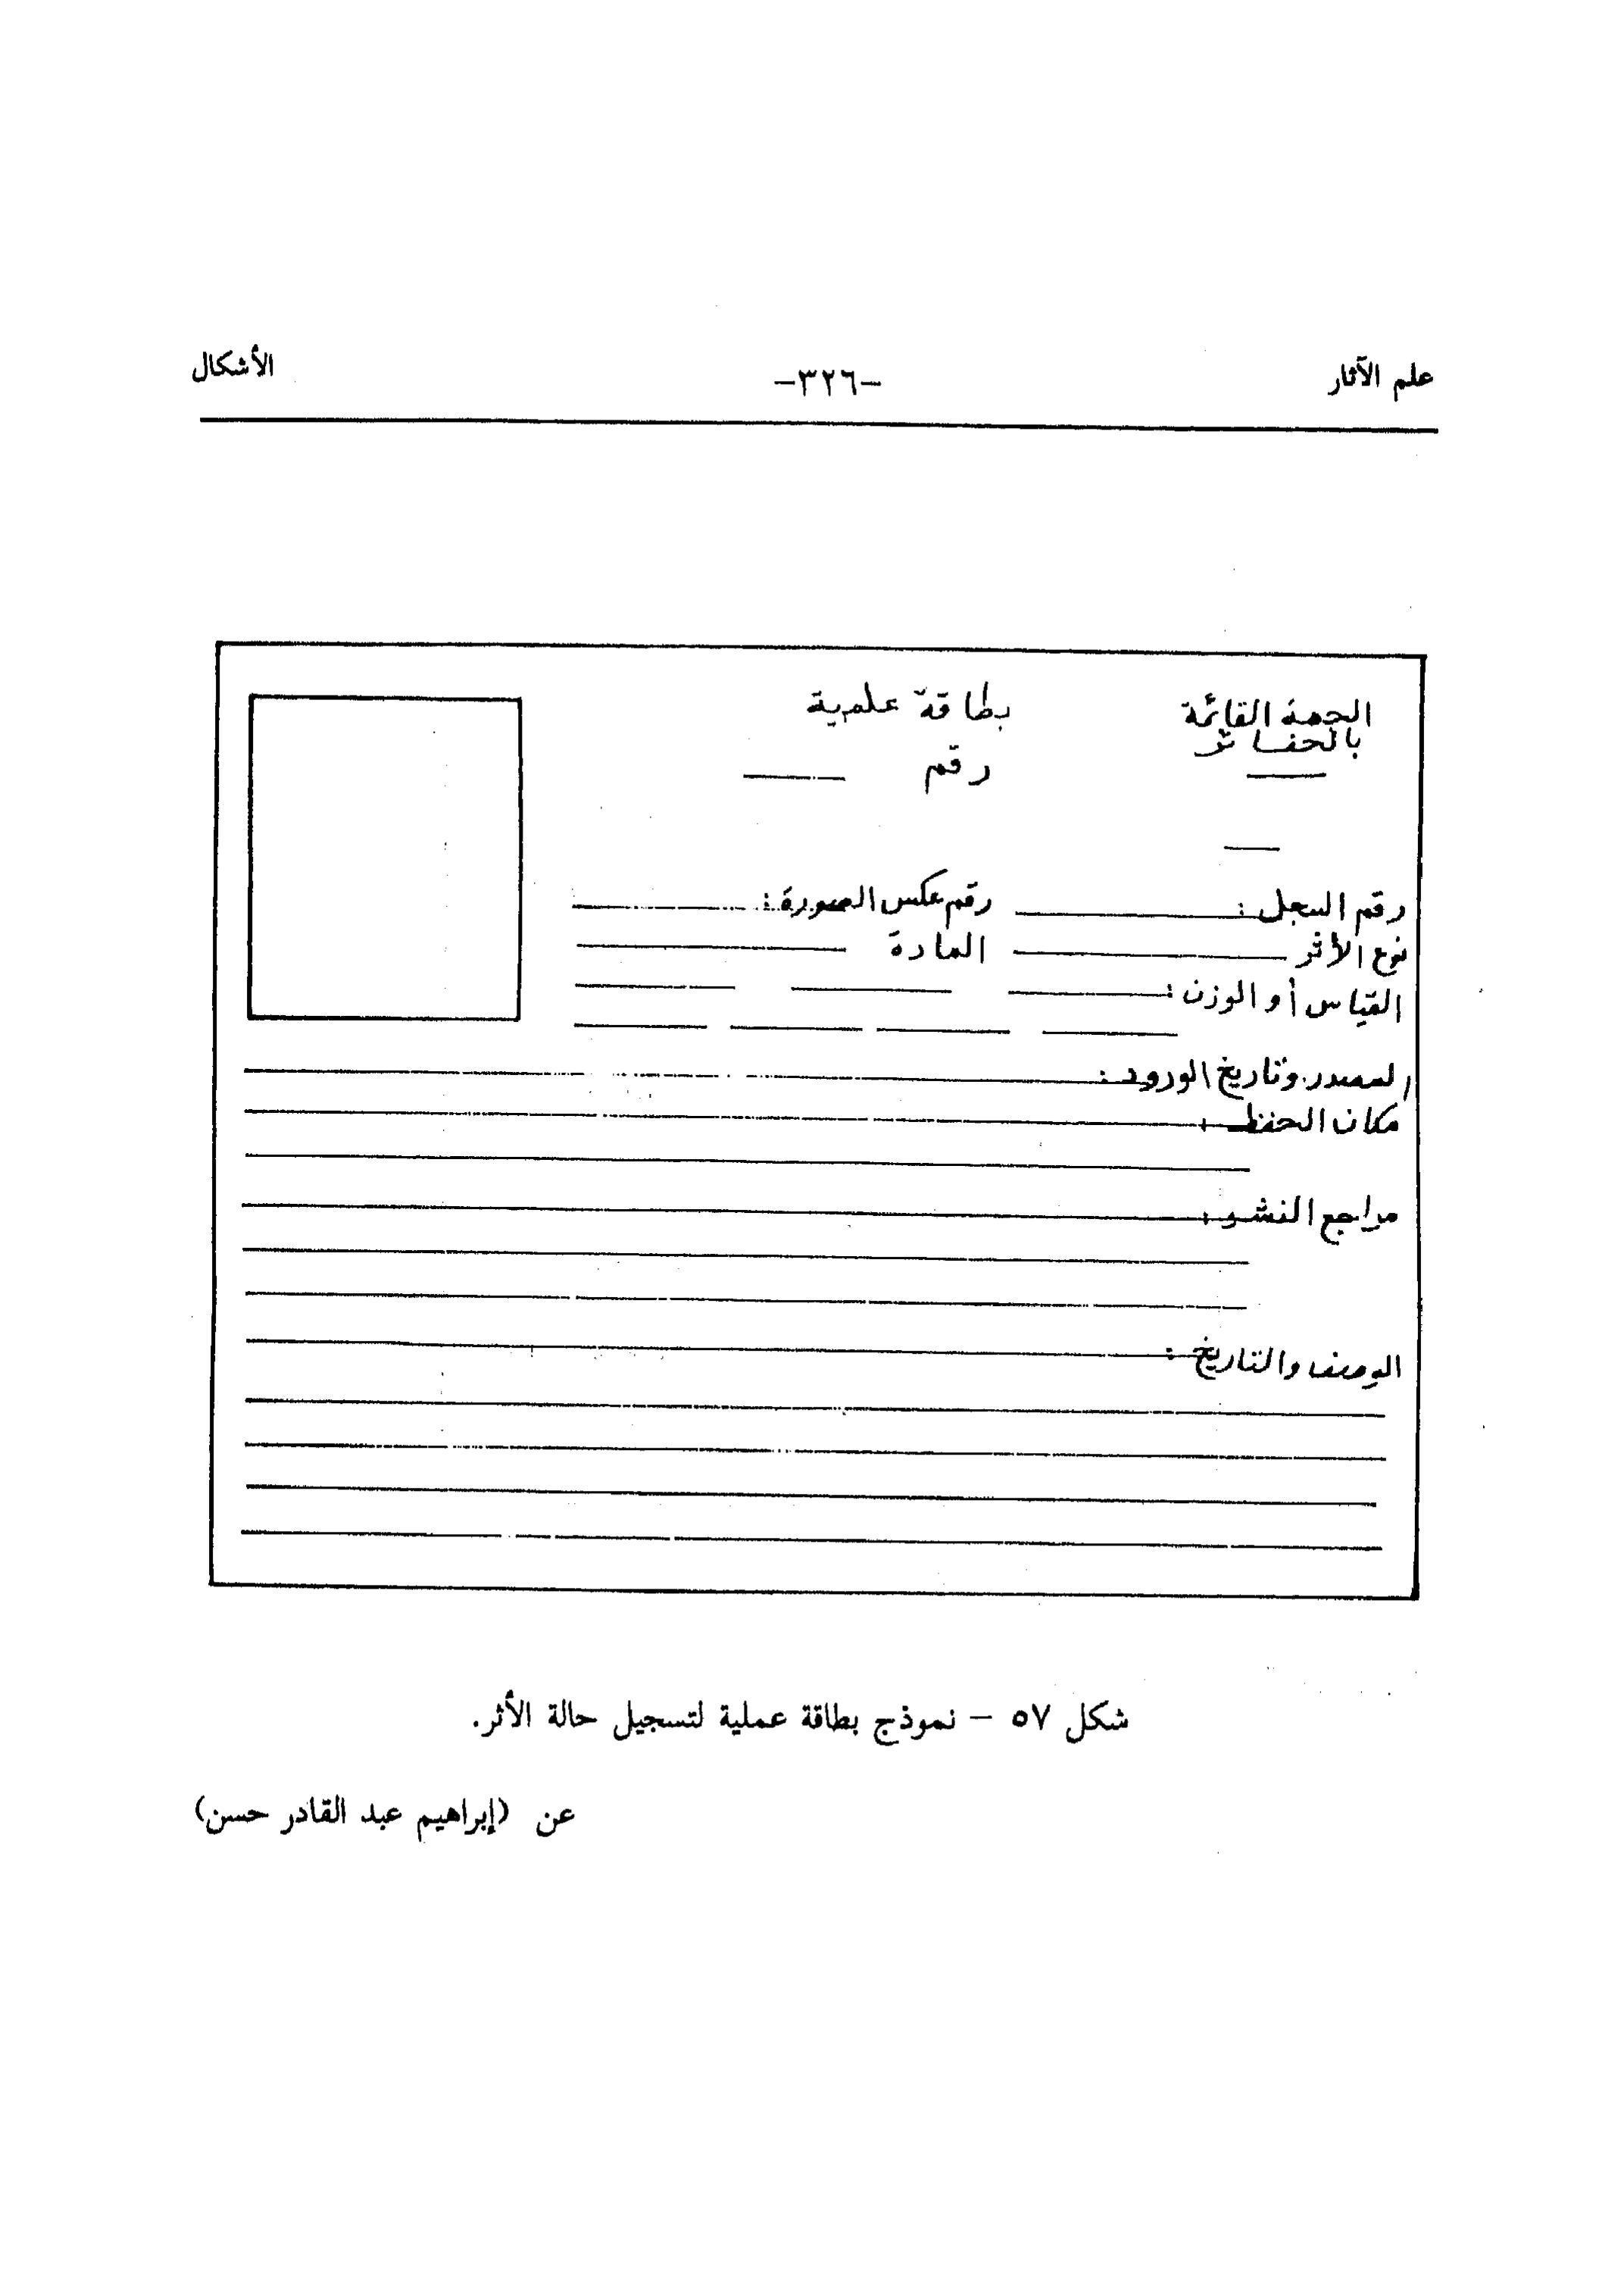 علم الآثار -٣٢٦- الأشكال
الجهة القائمة بطاقة علمية
بالحفائر
رقم
رقم السجل : رقم عكس الصورة :
نوع الأثر المادة
القياس أو الوزن :
المصدر وتاريخ الورود :
مكان الحفظ :
مراجع النشر :
الوصف والتاريخ :
شكل ٥٧ – نموذج بطاقة عملية لتسجيل حالة الأثر.
عن (إبراهيم عبد القادر حسن)